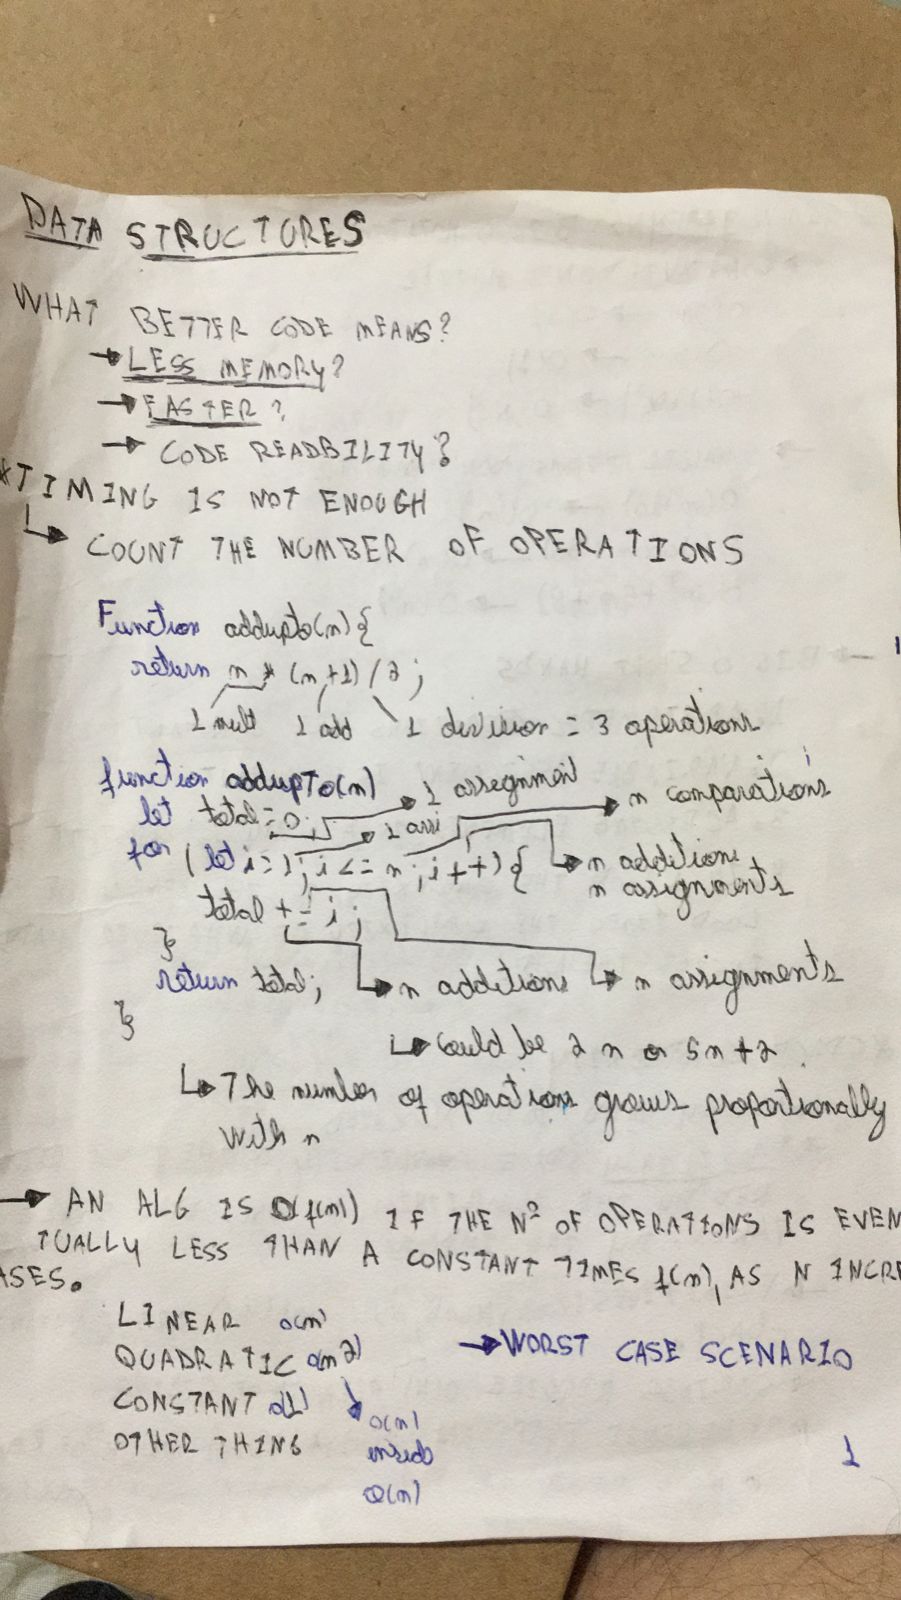 DATA STRUCTURES
WHAT BETTER CODE MEANS?
→ LESS MEMORY?
→ FASTER?
→ CODE READBILITY?
*TIMING IS NOT ENOUGH
↳ COUNT THE NUMBER OF OPERATIONS
Function addupto(n){
return n * (n+1) / 2 ;
1 mult 1 add 1 division = 3 operations
function addupTo(n)
→ 1 assignment
let total = 0;
→ n comparations
→ 1 assi
for (let i = 1; i <= n; i++) {
→ n additions
n assignments
total += i;
}
return total;
→ n additions → n assignments
}
↳ Could be 2n or 5n+2.
↳ The number of operations grows proportionally
with n
→ AN ALG IS O(f(n)) IF THE Nº OF OPERATIONS IS EVEN
TUALLY LESS THAN A CONSTANT TIMES f(n), AS N INCRE
ASES.
LINEAR O(n)
QUADRATIC O(n2)
→ WORST CASE SCENARIO
CONSTANT O(1)
OTHER THING
↳ O(n)
inside
O(n)
1